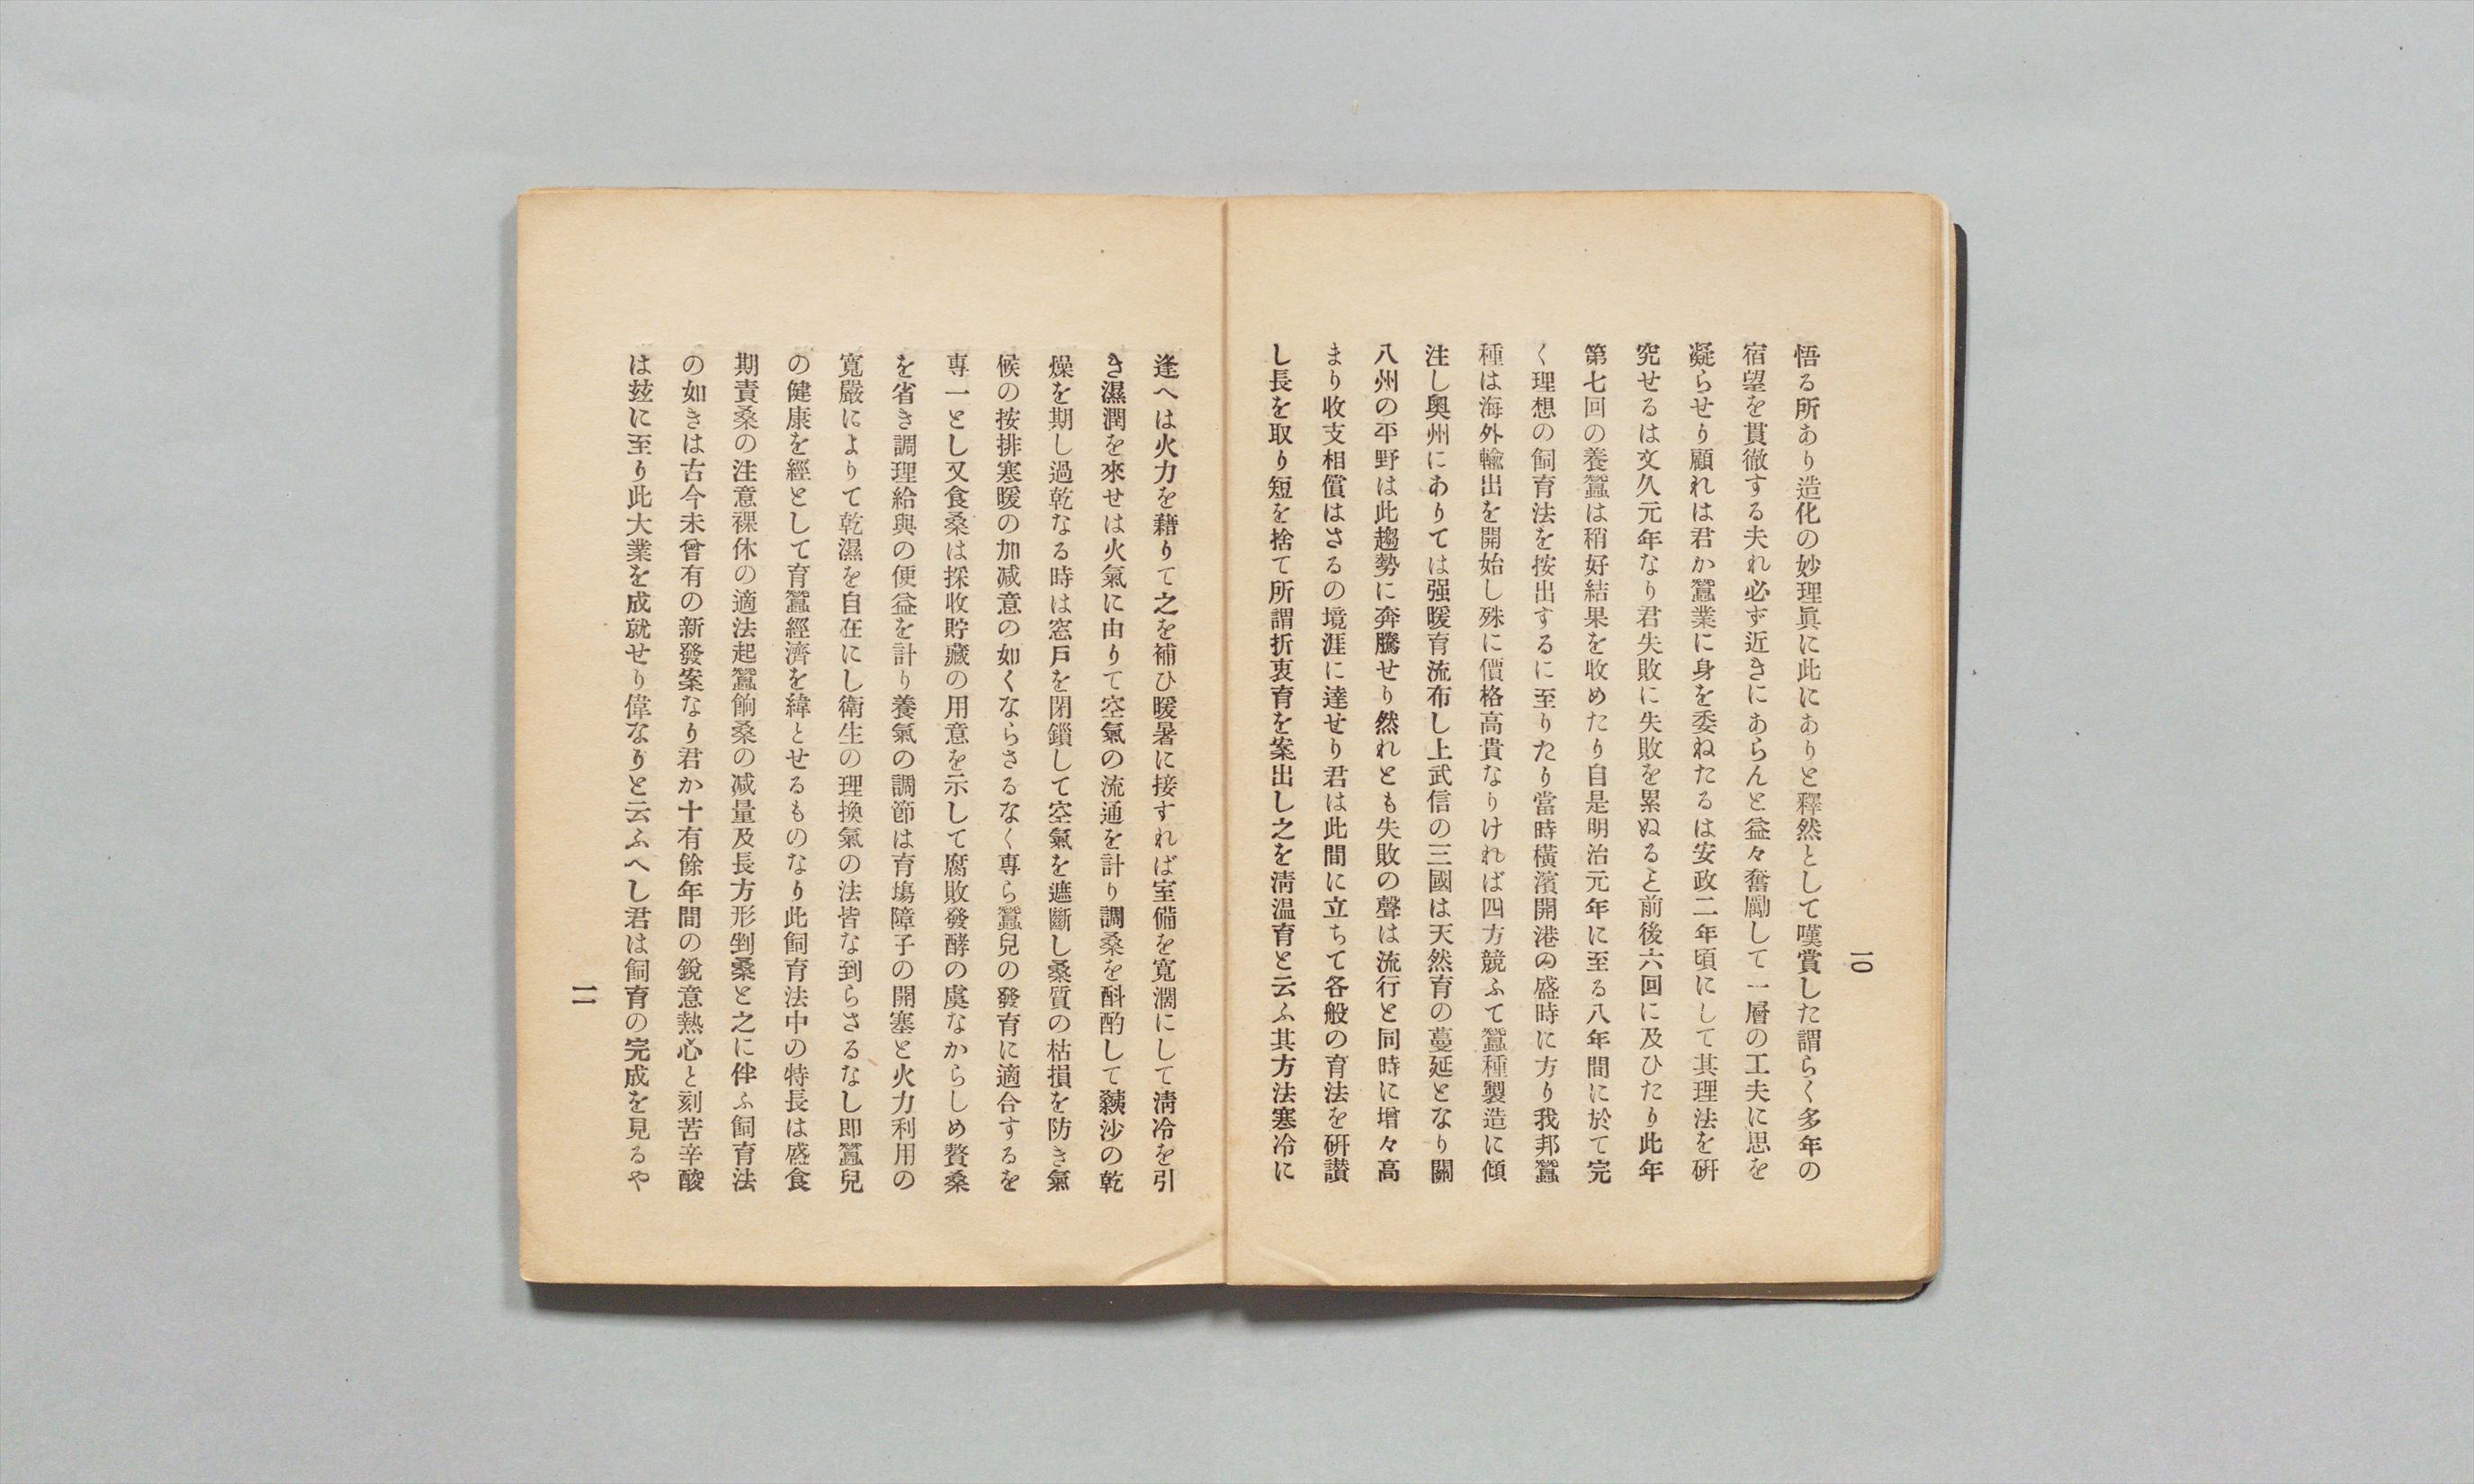 一〇
悟る所あり造化の妙理眞に此にありと釋然として嘆賞した謂らく多年の
宿望を貫徹する夫れ必ず近きにあらんと益々奮勵して一層の工夫に思を
凝らせり顧れは君か蠶業に身を委ねたるは安政二年頃にして其理法を硏
究せるは文久元年なり君失敗に失敗を累ぬると前後六回に及ひたり此年
第七回の養蠶は稍好結果を收めたり自是明治元年に至る八年間に於て完
く理想の飼育法を按出するに至りたり當時橫濱開港の盛時に方り我邦蠶
種は海外輸出を開始し殊に價格高貴なりければ四方競ふて蠶種製造に傾
注し奧州にありては强暖育流布し上武信の三國は天然育の蔓延となり關
八州の平野は此趨勢に奔騰せり然れとも失敗の聲は流行と同時に增々高
まり收支相償はさるの境涯に達せり君は此間に立ちて各般の育法を硏讃
し長を取り短を捨て所謂折衷育を案出し之を淸溫育と云ふ其方法寒冷に
逢へは火力を藉りて之を補ひ暖暑に接すれば室備を寬濶にして淸冷を引
き濕潤を來せは火氣に由りて空氣の流通を計り調桑を斟酌して蛺沙の乾
燥を期し過乾なる時は窓戶を閉鎖して空氣を遮斷し桑質の枯損を防き氣
候の按排寒暖の加减意の如くならさるなく專ら蠶兒の發育に適合するを
專一とし又食桑は採收貯藏の用意を示して腐敗發酵の虞なからしめ贅桑
を省き調理給與の便益を計り養氣の調節は育塲障子の開塞と火力利用の
寬嚴によりて乾濕を自在にし衞生の理換氣の法皆な到らさるなし卽蠶兒
の健康を經として育蠶經濟を緯とせるものなり此飼育法中の特長は盛食
期責桑の注意裸休の適法起蠶餉桑の减量及長方形剉桑と之に伴ふ飼育法
の如きは古今未曾有の新發案なり君か十有餘年間の銳意熱心と刻苦辛酸
は玆に至り此大業を成就せり偉なりと云ふへし君は飼育の完成を見るや
一一